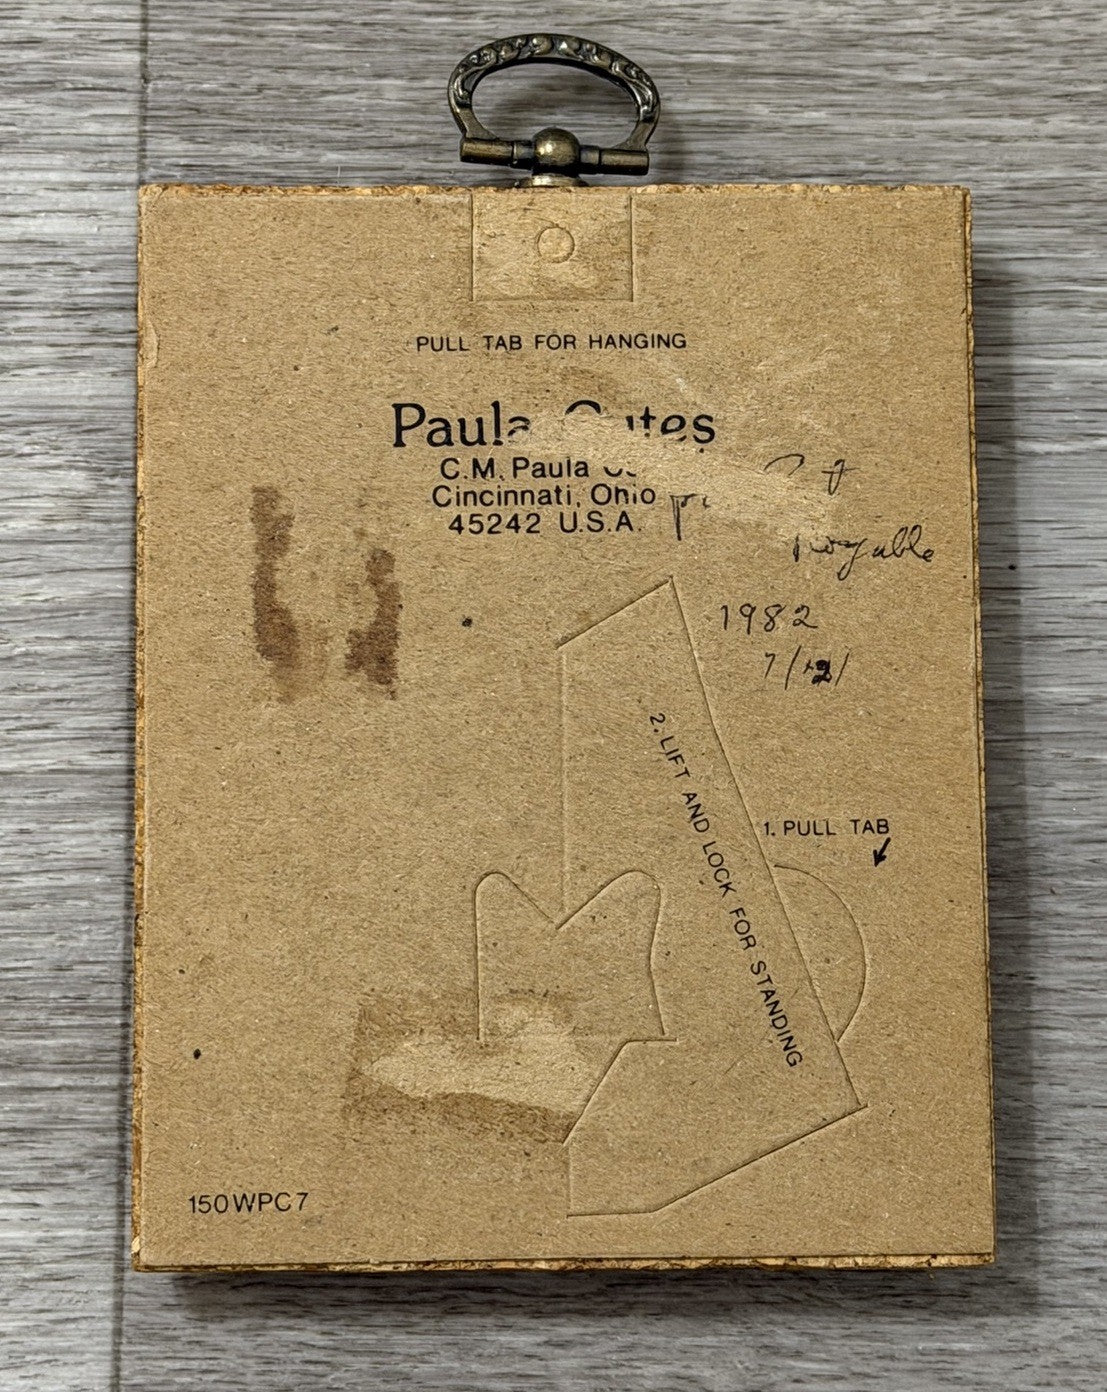 PULL TAB FOR HANGING
Paula
C.M. Paula
Cincinnati, Ohio
45242 U.S.A.
1982
2. LIFT AND LOCK FOR STANDING
1. PULL TAB
150WPC7